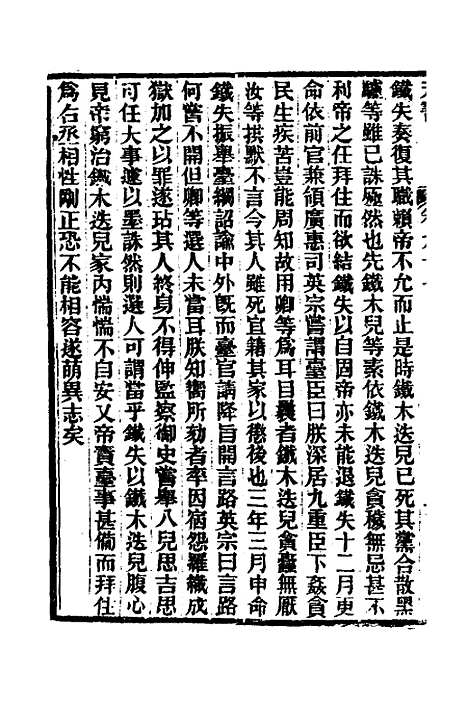 鐵失奏復其職賴帝不允而止是時鐵木迭兒已死其黨合散黑
驢等雖已誅殛然也先鐵木兒等素依鐵木迭兒貪穢無忌甚不
利帝之任拜住而欲結鐵失以自固帝亦未能退鐵失十二月更
命依前官兼領廣惠司英宗嘗謂臺臣曰朕深居九重臣下姦貪
民生疾苦豈能周知故用卿等為耳目曩者鐵木迭兒貪蠹無厭
汝等拱默不言今其人雖死宜籍其家以懲後也三年三月申命
鐵失振舉臺綱詔諭中外既而臺官請降旨開言路英宗曰言路
何嘗不開但卿等選人未當耳朕知嚮所劾者率因宿怨羅織成
獄加之以罪遂玷其人終身不得伸監察御史嘗舉八兒思吉思
可任大事遽以墨誅然則選人可謂當乎鐵失以鐵木迭兒腹心
見帝窮治鐵木迭兒家內惴惴不自安又帝責臺事甚備而拜住
為右丞相性剛正恐不能相容遂萌異志矣